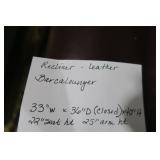 Recliner - Leather
Barcalounger
33"W x 36"D (closed) x 40"H
22" seat ht 25" arm ht